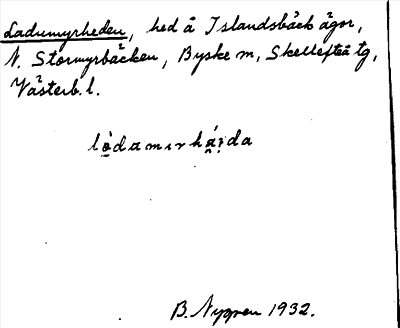 Ladumyrheden, hed å Islandsbäck ägor,
N. Stormyrbäcken, Byske sn, Skellefteå tg,
Västerb. l.
B. Nygren 1932.